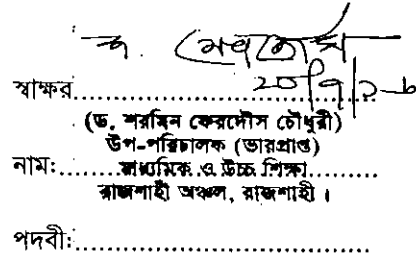 স্বাক্ষর..................
(ড. শরমিন ফেরদৌস চৌধুরী)
উপ-পরিচালক (ভারপ্রাপ্ত)
নাম:.....মাধ্যমিক ও উচ্চ শিক্ষা.....
রাজশাহী অঞ্চল, রাজশাহী।
পদবী:..................